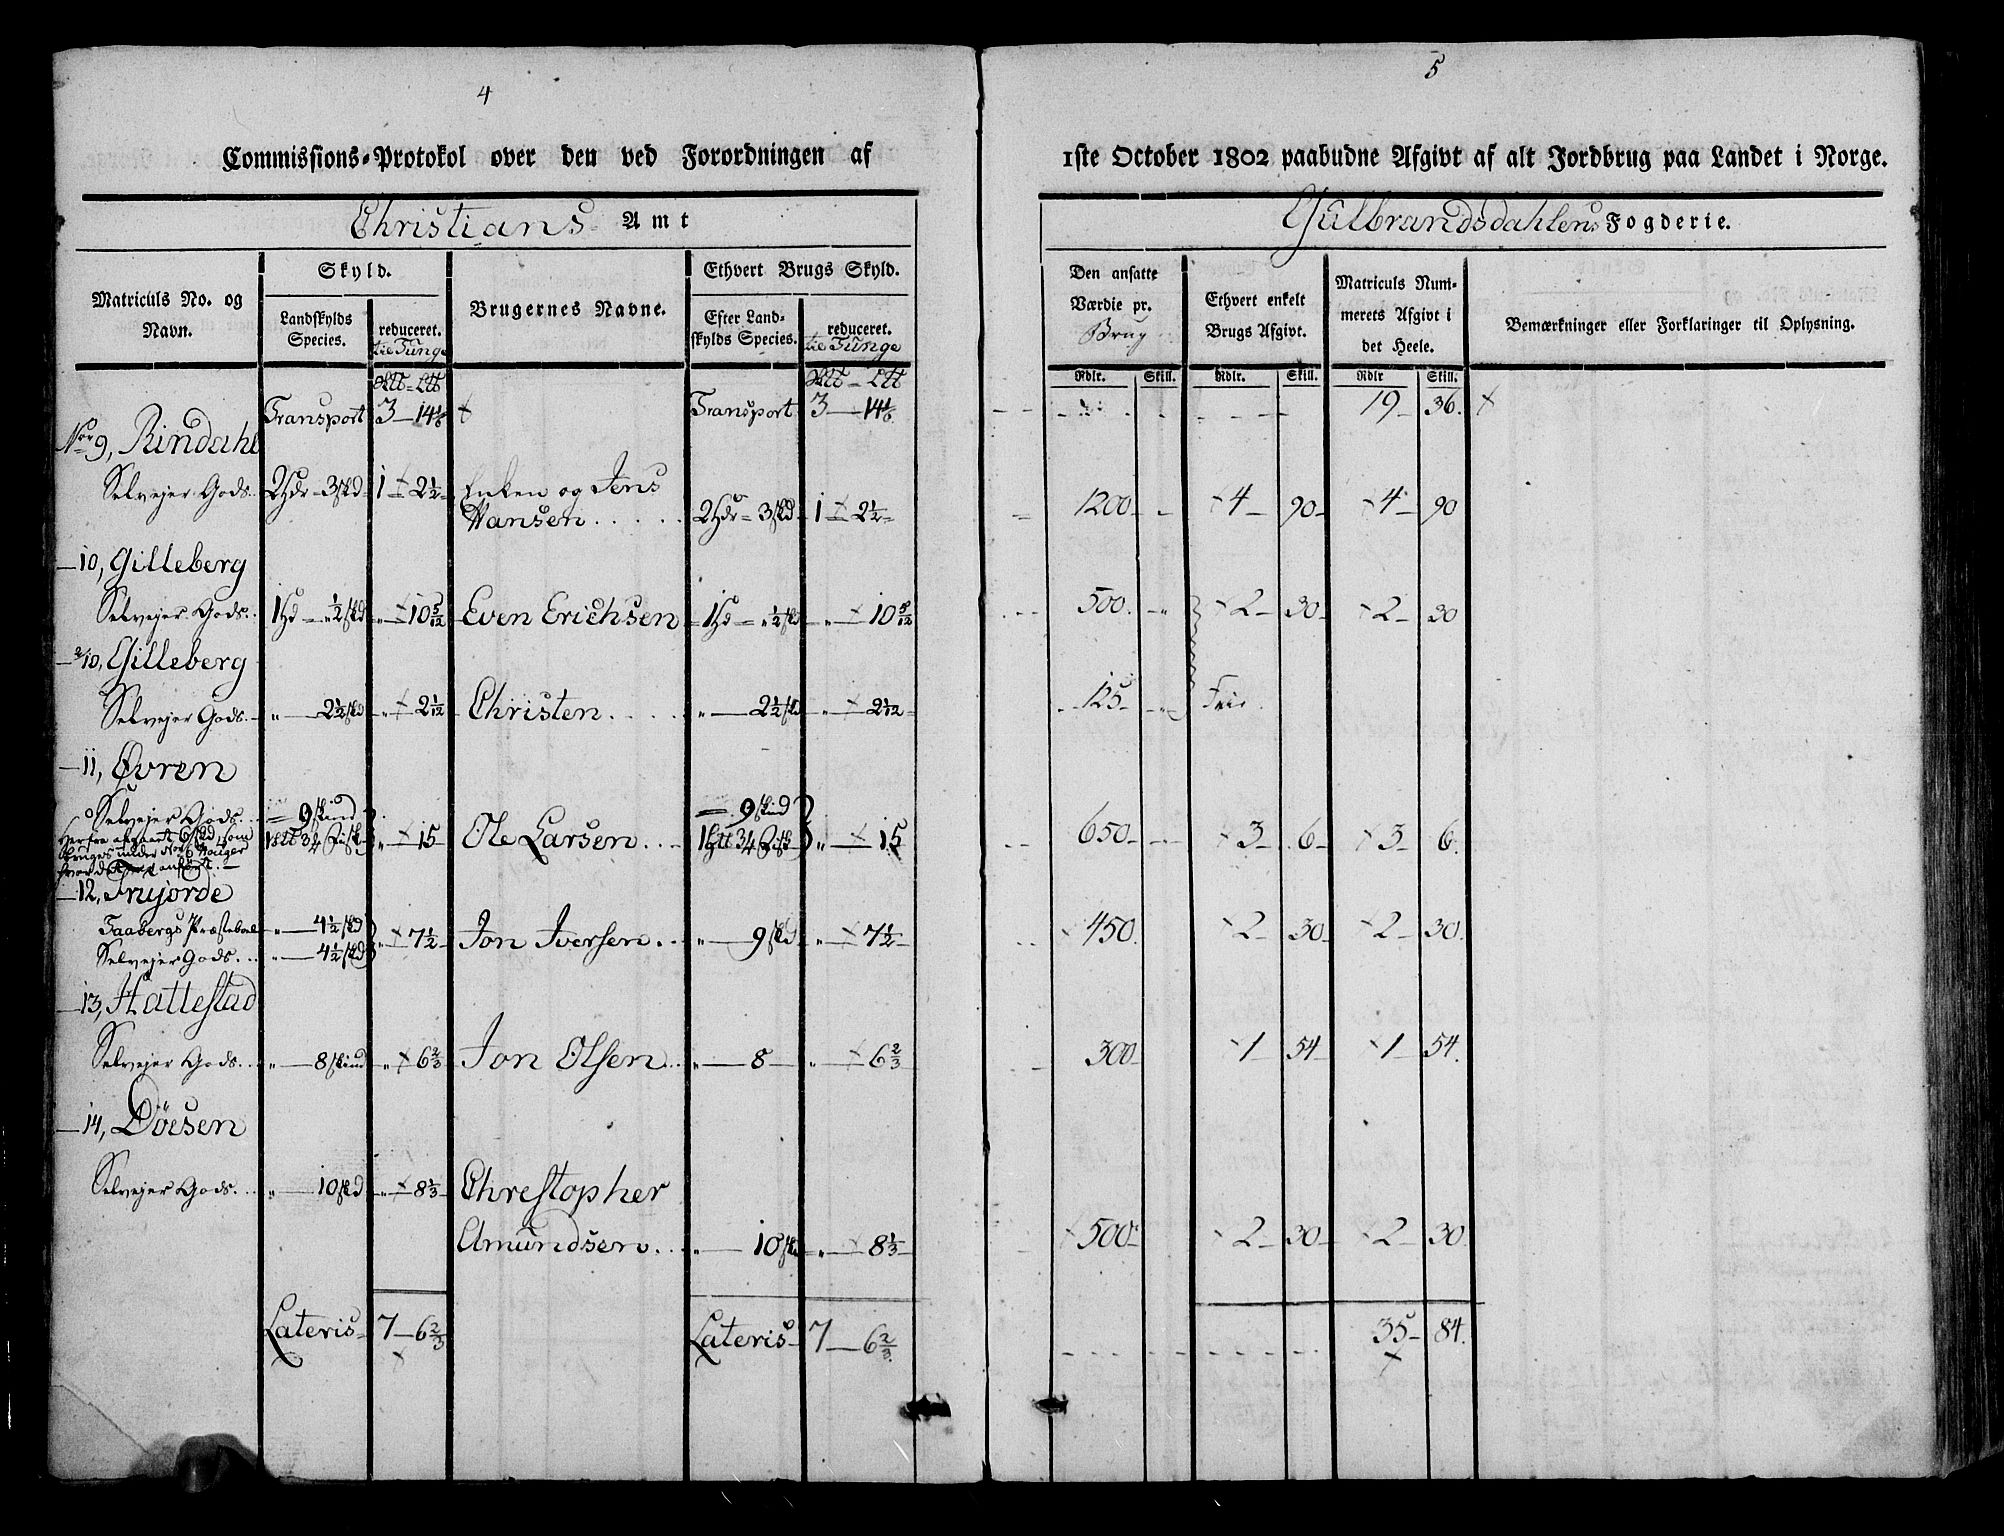 4
5
Commissions-Protokol over den ved Forordningen af
1ste October 1802 paabudne Afgivt af alt Jordbrug paa Landet i Norge.
Christians Amt
Gulbrandsdahlens Fogderie.
Matriculs No. og Navn.
Skyld.
Landskylds Species.
reduceret. til Tunge
Brugernes Navne.
Ethvert Brugs Skyld.
Efter Landskylds Species.
reduceret. til Tunge
Den ansatte Værdie pr. Brug
Ethvert enkelt Brugs Afgivt.
Matriculs Nummerets Afgivt i det Heele.
Bemærkninger eller Forklaringer til Oplysning.
Rdlr. Skill. Rdlr. Skill. Rdlr Skill.
Transport 3 - 14 1/6 Transport 3 - 14 1/6 19 - 36.
No 9, Rindahl
Selvejer Gods 2Hdr - 3skd 1 - 2 1/2 Enken og Jens
Hansen 2Hdr - 3skd 1 - 2 1/2 1200 4 - 90 4 - 90
10, Gilleberg
Selvejer Gods 1Hd - 1/2 skd 10 5/12 Even Erichsen 1Hd - 1/2 skd 10 5/12 500 2 - 30 2 - 30
2/10, Gilleberg
Selvejer Gods 2 1/2 skd 2 1/12 Christen 2 1/2 skd 2 1/12 125 Frie
11, Øvren
Selvejer Gods 9 skind 9 skind
1 3/4 Fisk 15 Ole Larsen 1 3/4 Fisk 15 650 3 - 6 3 - 6
12, Trujorde
Faabergs Præsteboel 4 1/2 skd
Selvejer Gods 4 1/2 skd 7 1/2 Jon Iversen 9 skd 7 1/2 450 2 - 30 2 - 30
13, Hattestad
Selvejer Gods 8 skind 6 2/3 Jon Olsen 8 6 2/3 300 1 54 1 54
14, Döesen
Selvejer Gods 10 skd 8 1/3 Christopher
Amundsen 10 sk 8 1/3 500 2 - 30 2 - 30
Lateris 7 - 6 2/3 Lateris 7 - 6 2/3 35 - 84.